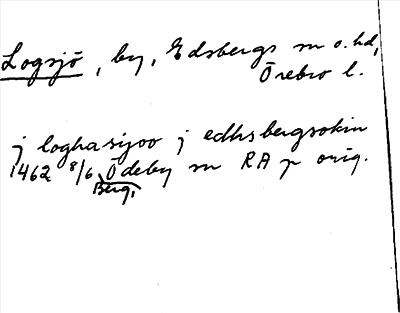 Logsjö, by, Edsbergs sn o. hd,
Örebro l.
j loghasijoo j edhsbergsokin
1462 8/6 Ödeby sn RA p orig.
Berg,